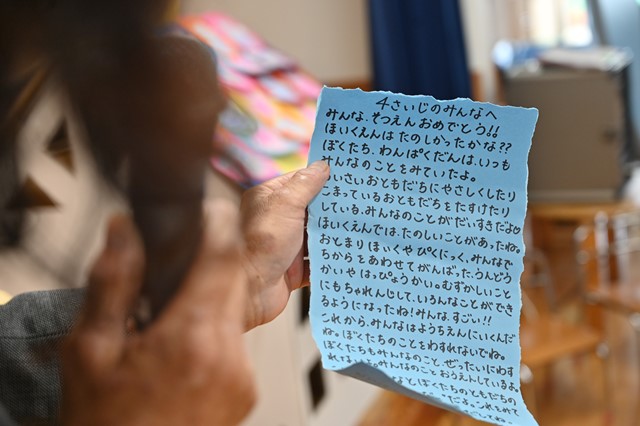 4さいじのみんなへ
みんな、そつえんおめでとう!!
ほいくえんはたのしかったかな??
ぼくたち、わんぱくだんは、いつも
みんなのことをみていたよ。
ちいさいおともだちにやさしくしたり
こまっているおともだちをたすけたり
している、みんなのことがだいすきだよ
ほいくえんでは、たのしいことがあったね。
おとまりほいくやぴくにっく、みんなで
ちからをあわせてがんばった、うんどう
かいや、はっぴょうかい。むずかしいこと
にもちゃれんじして、いろんなことができ
るようになったね!みんな、すごい!!
これから、みんなはようちえんにいくんだ
ね。ぼくたちのことをわすれないでね。
ぼくたちもみんなのこと、ぜったいにわす
みんなのことおうえんしているよ。
とぼくたちのともだちの